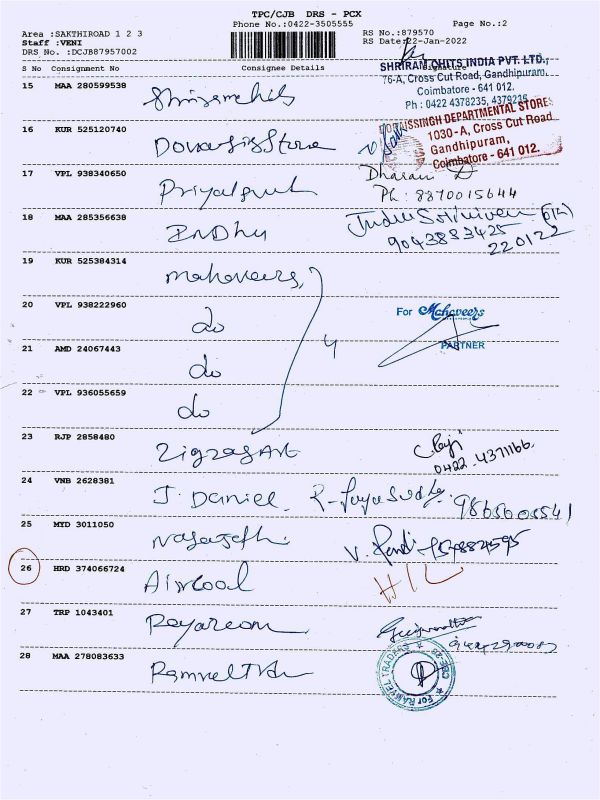 TPC/CJB DRS - PCX
Phone No.:0422-3505555
Page No.:2
Area :SAKTHIROAD 1 2 3
Staff :VENI
DRS No. :DCJB87957002
RS No.:879570
RS Date:22-Jan-2022
S No Consignment No Consignee Details Signature
SHRIRAM CHITS INDIA PVT. LTD.,
76-A, Cross Cut Road, Gandhipuram,
Coimbatore - 641 012.
Ph : 0422 4378235, 4379236
15 MAA 280599538
DEPARTMENTAL STORES
1030-A, Cross Cut Road
Gandhipuram,
Coimbatore - 641 012.
16 KUR 525120740
17 VPL 938340650 Dharani D
Ph : 8870015644
18 MAA 285356638 Indhu
9043833425
220122
19 KUR 525384314 Mahaveers,
20 VPL 938222960 do
For Mahaveers
PARTNER
21 AMD 24067443 do
4
22 VPL 936055659 do
23 RJP 2858480 Zigzag Art
0422-4371166.
24 VNB 2628381 J. Daniel R-Jayasudha.
25 MYD 3011050
26 HRD 374066724 Aircool
27 TRP 1043401
28 MAA 278083633
For RAMVEL TRADERS
CBE-12